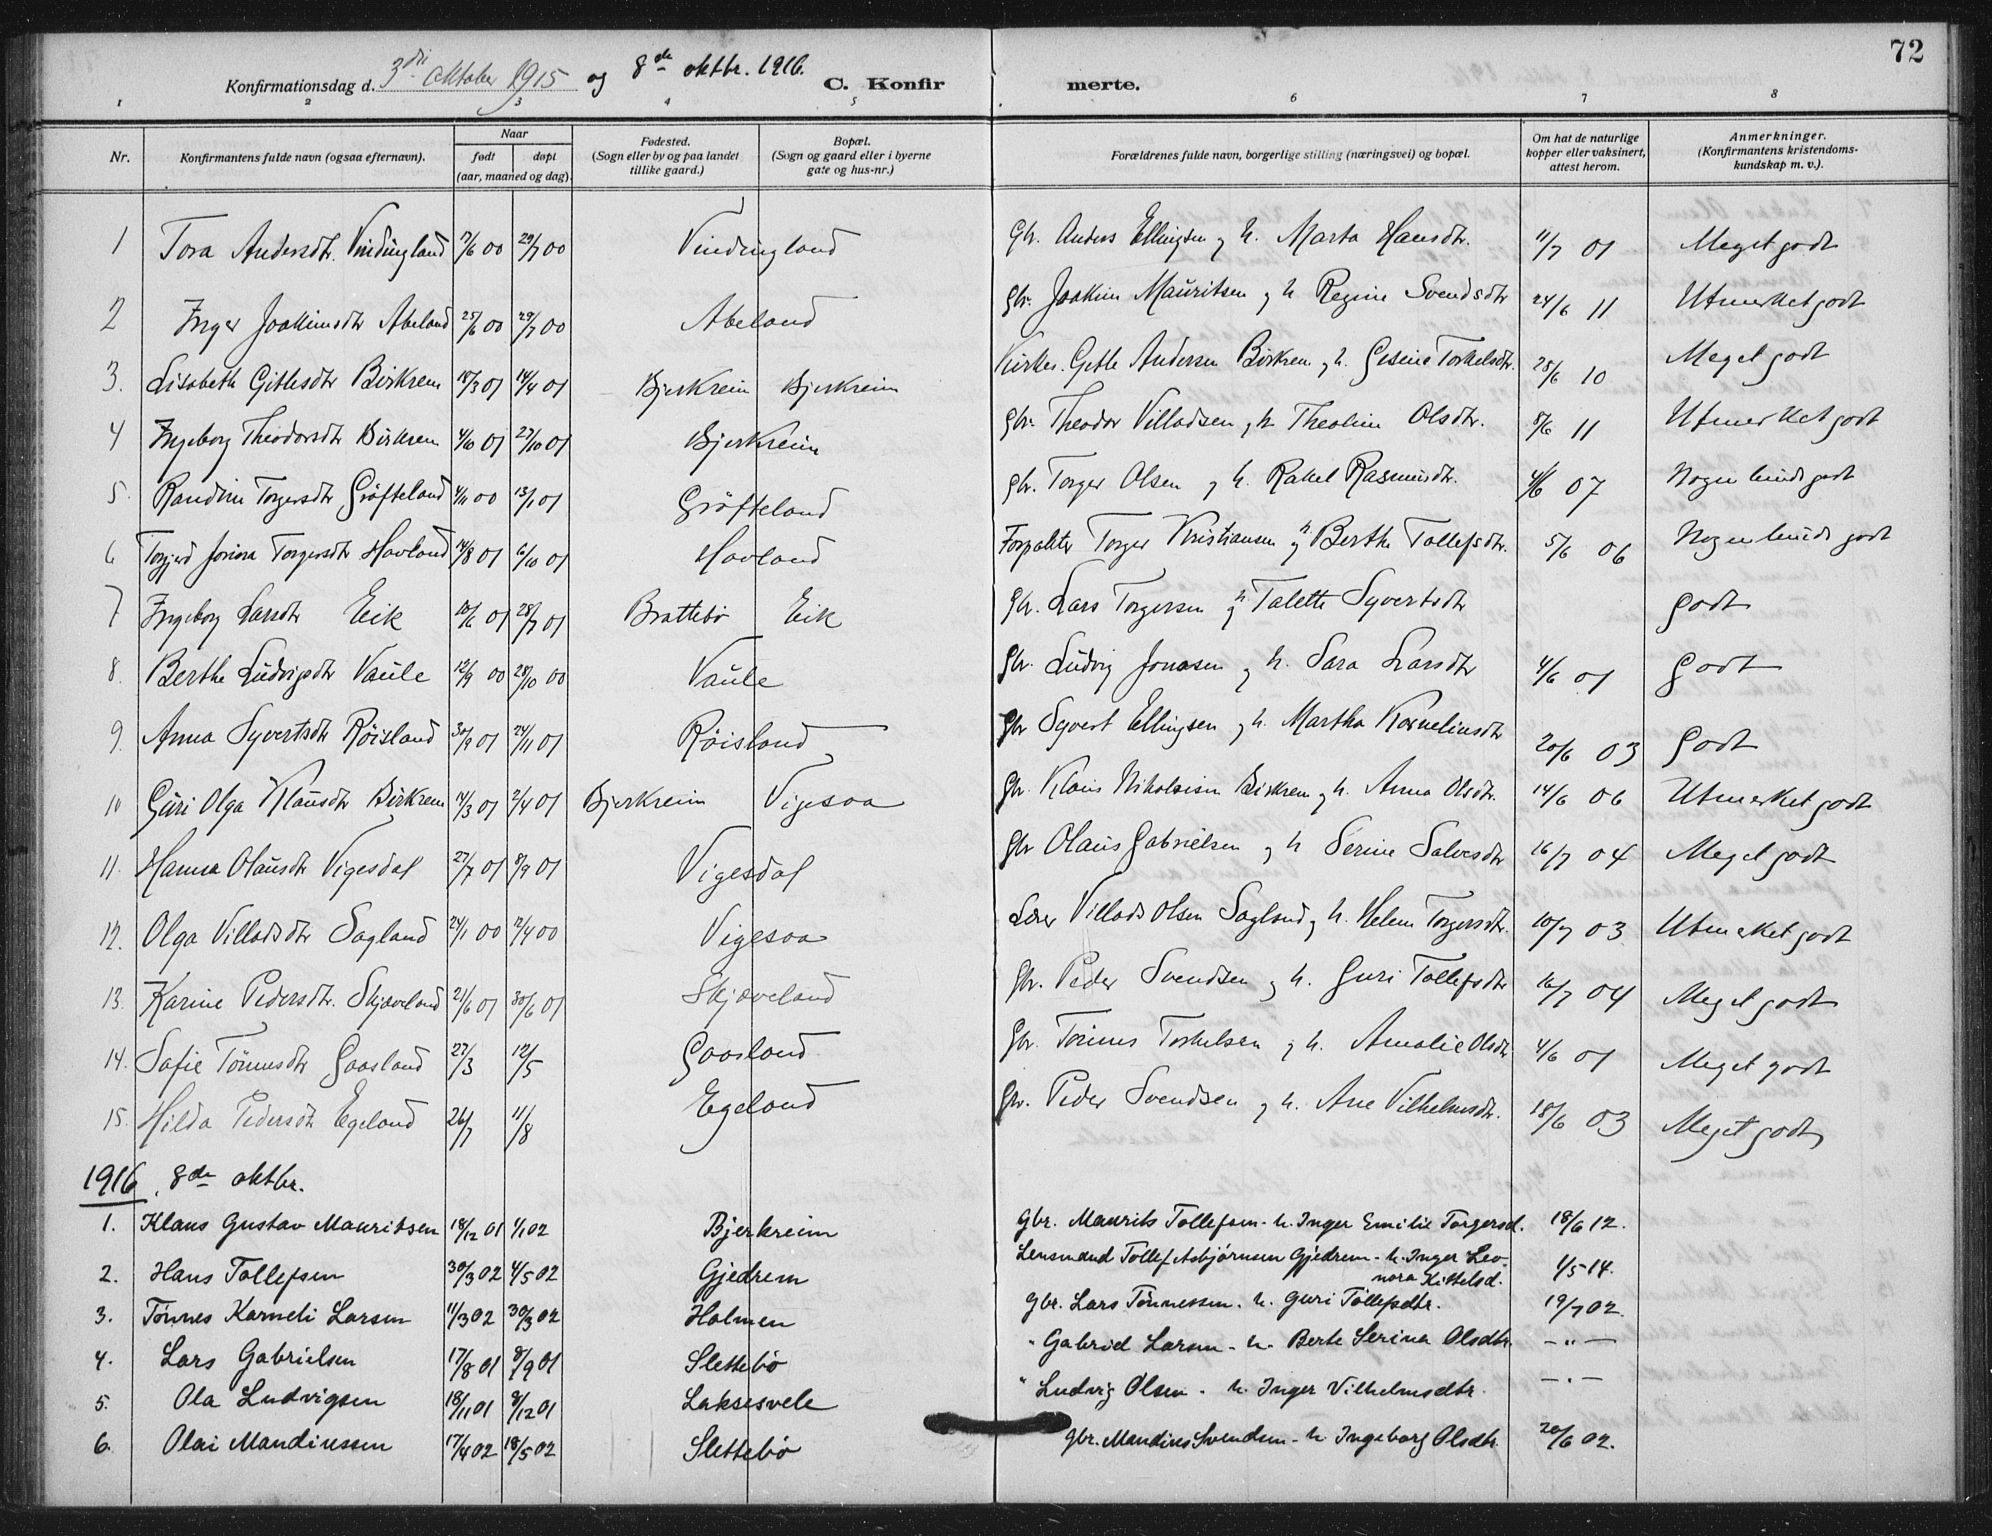 72
Konfirmationsdag d. 3die oktober 1915 og 8de oktbr. 1916. C. Konfirmerte.
1 2 3 4 5 6 7 8
Nr. Konfirmantens fulde navn (ogsaa efternavn). Naar født døpt (aar, maaned og dag). Fødested. (Sogn eller by og paa landet tillike gaard.) Bopæl. (Sogn og gaard eller i byerne gate og hus-nr.) Forældrenes fulde navn, borgerlige stilling (næringsvei) og bopæl. Om hat de naturlige kopper eller vaksinert, attest herom. Anmerkninger. (Konfirmantens kristendomskundskap m. v.).
1 Tora Andersdtr. Vindingland 7/6 00 29/7 00 Vindingland Gbr. Anders Ellingsen og h. Marta Hansdtr. 11/7 01 Meget godt
2 Inger Joakimsdtr Abeland 25/6 00 29/7 00 Abeland Gbr. Joakim Mauritsen og h Regine Svendsdtr 24/6 11 Utmerket godt
3. Lisabeth Gitlesdtr Birkrem 18/3 01 14/4 01 Bjerkreim Bjerkreim Kirkes. Gitle Andersen Birkrem og h. Gesine Torkelsdtr. 28/6 10 Meget godt
4 Ingeborg Theodorsdtr Birkrem 4/10 01 27/10 01 Bjerkreim Gbr. Theodor Villadsen og h Theoline Olsdtr. 8/6 11 Utmerket godt
5 Randine Torgersdtr Gröfteland 4/11 00 13/1 01 Gröfteland Gbr. Torger Olsen og h. Rakel Rasmusdtr. 4/6 07 Nogenlunde godt
6 Jorina Torgersdtr Hovland 14/8 01 6/10 01 Hovland Forpakter Torger Kristiansen og h Berthe Tollefsdtr. 5/6 06 Nogenlunde godt
7 Ingeborg Larsdtr Eik 10/6 01 28/7 01 Brattebö Eik Gbr. Lars Torgersen og h. Talette Syvertsdtr Godt
8. Berthe Ludvigsdtr Vaule 12/9 00 28/10 00 Vaule Gbr. Ludvig Jonasen og h. Sara Larsdtr 4/6 01 Godt
9. Anna Syvertsdtr Röisland 30/9 01 24/11 01 Röisland Gbr Syvert Ellingsen og h. Martha Korneliusdtr 20/6 03 Godt
10 Guri Olga Klausdtr Birkrem 14/3 01 2/4 01 Bjerkreim Vigesaa Gbr. Klaus Nikolaisen Birkrem og h. Anna Olsdtr. 14/6 06 Utmerket godt
11. Hanna Olausdtr Vigesdal 27/7 01 8/9 01 Vigesdal Gbr Olaus Gabrielsen og h Serine Salvesdtr 16/7 04 Meget godt
12. Olga Villadsdtr Sagland 24/1 00 12/4 00 Vigesaa Lærer Villads Olsen Sagland og h. Helene Torgersdtr. 10/7 03 Utmerket godt
13. Karine Pedersdtr. Skjæveland 21/6 01 30/6 01 Skjæveland Gbr. Peder Svendsen og h. Guri Tollefsdtr 16/7 04 Meget godt
14. Sofie Tönnesdtr Gaasland 27/3 12/5 Gaasland Gbr. Tönnes Torkelsen og h. Amalie Olsdtr 4/6 01 Meget godt
15. Hilda Pedersdtr Egeland 26/7 11/8 Egeland Gbr. Peder Svendsen og h. Ane Vilhelmsdtr. 18/6 03 Meget godt
1916, 8de oktbr.
1. Klaus Gustav Mauritsen 18/12 01 1/1 02 Bjerkreim Gbr. Maurits Tollefsen - h. Inger Emilie Torgersd. 18/6 12.
2. Hans Tollefsen 30/3 02 4/5 02 Gjedrem Lensmand Tollef Asbjörnsen Gjedrem - h. Inger Leonora Kittelsd. 1/5 14.
3. Tönnes Karneli Larsen 11/3 02 30/3 02 Holmen Gbr. Lars Tönnessen. h. Guri Tollefsdtr. 19/7 02.
4. Lars Gabrielsen 17/8 01 8/9 01 Slettebö " Gabriel Larsen - h. Berte Serina Olsdtr. — " —
5. Ola Ludvigsen 18/11 01 8/12 01 Laksesvele " Ludvig Olsen - h. Inger Vilhelmsdtr. — " —
6. Olai Mandiussen 17/4 02 18/5 02 Slettebö Gbr. Mandius Svendsen - h Ingeborg Olsdtr. 20/6 02.